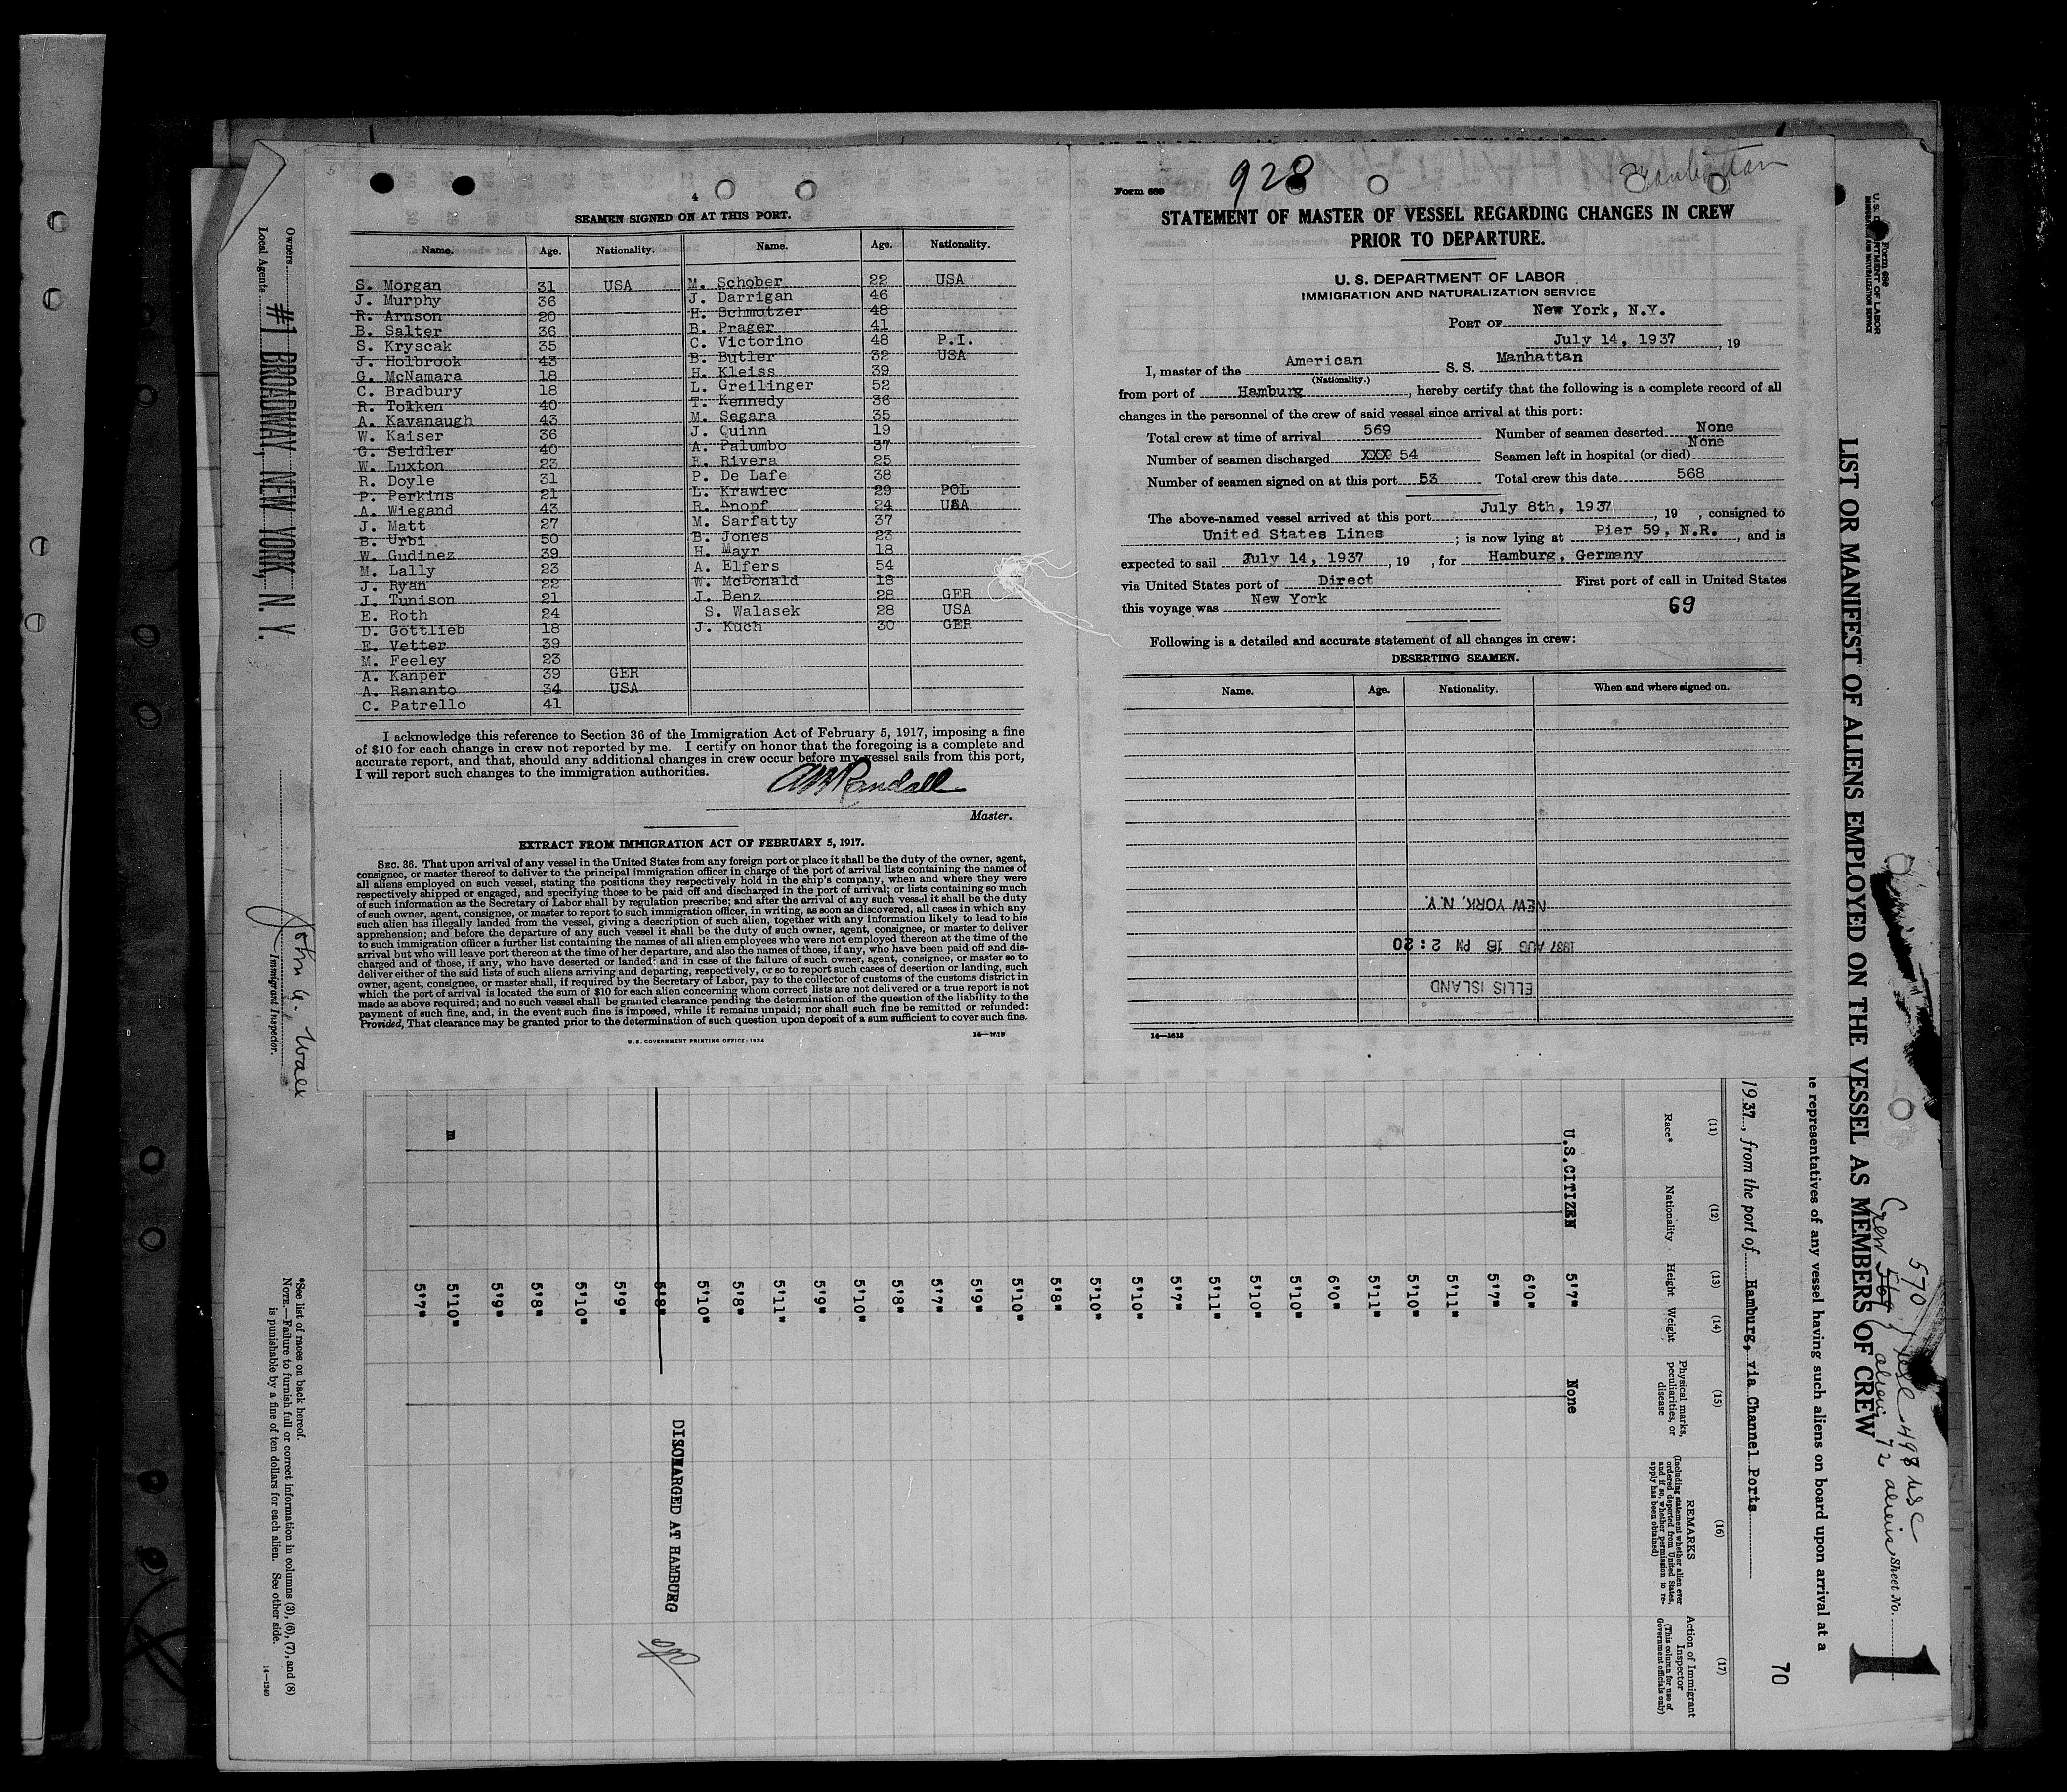 4
SEAMEN SIGNED ON AT THIS PORT.
Name. Age. Nationality. Name. Age. Nationality.
S. Morgan 31 USA M. Schober 22 USA
J. Murphy 36 J. Darrigan 46
R. Arnson 20 H. Schmotzer 48
B. Salter 36 B. Prager 41
S. Kryscak 35 C. Victorino 48 P.I.
J. Holbrook 43 B. Butler 32 USA
G. McNamara 18 H. Kleiss 39
C. Bradbury 18 L. Greilinger 52
R. Tolken 40 T. Kennedy 36
A. Kavanaugh 43 M. Segara 35
W. Kaiser 36 J. Quinn 19
G. Seidler 40 A. Palumbo 37
W. Luxton 23 E. Rivera 25
R. Doyle 31 P. De Lafe 38
P. Perkins 21 L. Krawiec 29 POL
A. Wiegand 43 R. Knopf 24 USA
J. Matt 27 M. Sarfatty 37
B. Urbi 50 B. Jones 23
W. Gudinez 39 H. Mayr 18
M. Lally 23 A. Elfers 54
J. Ryan 22 W. McDonald 18
J. Tunison 21 J. Benz 28 GER
E. Roth 24 S. Walasek 28 USA
D. Gottlieb 18 J. Kuch 30 GER
E. Vetter 39
M. Feeley 23
A. Kanper 39 GER
A. Rananto 34 USA
C. Patrello 41
I acknowledge this reference to Section 36 of the Immigration Act of February 5, 1917, imposing a fine
of $10 for each change in crew not reported by me. I certify on honor that the foregoing is a complete and
accurate report, and that, should any additional changes in crew occur before my vessel sails from this port,
I will report such changes to the immigration authorities.
AM Randall
Master.
EXTRACT FROM IMMIGRATION ACT OF FEBRUARY 5, 1917.
SEC. 36. That upon arrival of any vessel in the United States from any foreign port or place it shall be the duty of the owner, agent,
consignee, or master thereof to deliver to the principal immigration officer in charge of the port of arrival lists containing the names of
all aliens employed on such vessel, stating the positions they respectively hold in the ship's company, when and where they were
respectively shipped or engaged, and specifying those to be paid off and discharged in the port of arrival; or lists containing so much
of such information as the Secretary of Labor shall by regulation prescribe; and after the arrival of any such vessel it shall be the duty
of such owner, agent, consignee, or master to report to such immigration officer, in writing, as soon as discovered, all cases in which any
such alien has illegally landed from the vessel, giving a description of such alien, together with any information likely to lead to his
apprehension; and before the departure of any such vessel it shall be the duty of such owner, agent, consignee, or master to deliver
to such immigration officer a further list containing the names of all alien employees who were not employed thereon at the time of the
arrival but who will leave port thereon at the time of her departure, and also the names of those, if any, who have been paid off and dis-
charged and of those, if any, who have deserted or landed; and in case of the failure of such owner, agent, consignee, or master so to
deliver either of the said lists of such aliens arriving and departing, respectively, or so to report such cases of desertion or landing, such
owner, agent, consignee, or master shall, if required by the Secretary of Labor, pay to the collector of customs of the customs district in
which the port of arrival is located the sum of $10 for each alien concerning whom correct lists are not delivered or a true report is not
made as above required; and no such vessel shall be granted clearance pending the determination of the question of the liability to the
payment of such fine, and, in the event such fine is imposed, while it remains unpaid; nor shall such fine be remitted or refunded:
Provided, That clearance may be granted prior to the determination of such question upon deposit of a sum sufficient to cover such fine.
U. S. GOVERNMENT PRINTING OFFICE: 1934
Form 689
928
Manhattan
STATEMENT OF MASTER OF VESSEL REGARDING CHANGES IN CREW
PRIOR TO DEPARTURE.
U. S. DEPARTMENT OF LABOR
IMMIGRATION AND NATURALIZATION SERVICE
PORT OF New York, N.Y.
July 14, 1937, 19
I, master of the American S. S. Manhattan
(Nationality.)
from port of Hamburg, hereby certify that the following is a complete record of all
changes in the personnel of the crew of said vessel since arrival at this port:
Total crew at time of arrival 569 Number of seamen deserted None
Number of seamen discharged XXX 54 Seamen left in hospital (or died) None
Number of seamen signed on at this port 53 Total crew this date 568
The above-named vessel arrived at this port July 8th, 1937, 19 , consigned to
United States Lines; is now lying at Pier 59, N.R., and is
expected to sail July 14, 1937, 19 , for Hamburg, Germany
via United States port of Direct First port of call in United States
this voyage was New York
69
Following is a detailed and accurate statement of all changes in crew:
DESERTING SEAMEN.
Name. Age. Nationality. When and where signed on.
NEW YORK, N.Y.
1937 AUG 18 PM 2:20
ELLIS ISLAND
14—1613
Form 680
U. S. DEPARTMENT OF LABOR
IMMIGRATION AND NATURALIZATION SERVICE
LIST OR MANIFEST OF ALIENS EMPLOYED ON THE VESSEL AS MEMBERS OF CREW
570
Crew
498 USC
72 aliens
Sheet No.
1
e representatives of any vessel having such aliens on board upon arrival at a
70
1937, from the port of Hamburg, via Channel Ports
(11) (12) (13) (14) (15) (16) (17)
Race* Nationality Height Weight Physical marks, peculiarities, or disease
REMARKS
(Including statement whether alien ever ordered deported from United States, and if so, whether permission to re-apply has been obtained)
Action of Immigrant Inspector
(This column for use of Government officials only)
U.S.CITIZEN 5'7" None
6'0"
5'7"
5'11"
5'10"
5'11"
6'0"
5'10"
5'10"
5'11"
5'7"
5'10"
5'10"
5'8"
5'10"
5'9"
5'7"
5'8"
5'10"
5'9"
5'11"
5'8"
5'10"
5'8" DISCHARGED AT HAMBURG
5'9"
5'10"
5'8"
5'9"
5'10"
5'7"
*See list of races on back hereof.
NOTE.—Failure to furnish full or correct information in columns (3), (6), (7), and (8)
is punishable by a fine of ten dollars for each alien. See other side.
14—1240
Owners
Local Agents #1 BROADWAY, NEW YORK, N. Y.
Immigrant Inspector.